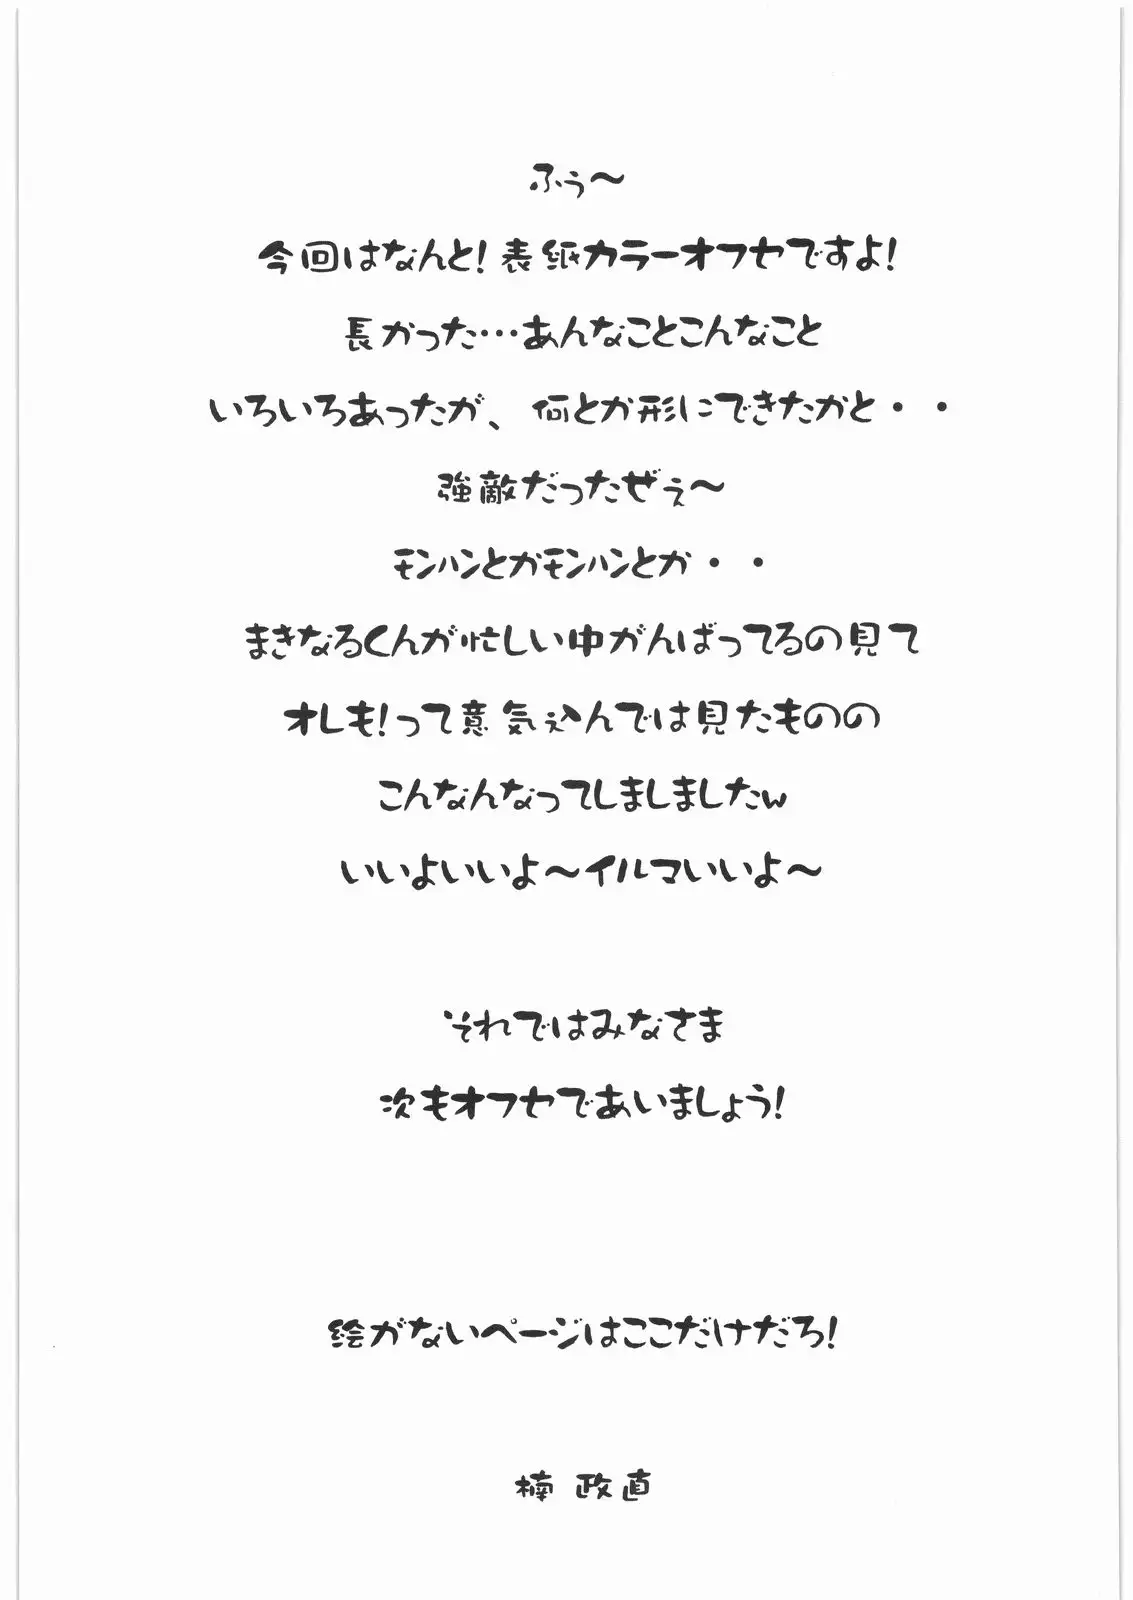 ふぅ〜
今回はなんと!表紙カラーオフセですよ!
長かった…あんなことこんなこと
いろいろあったが、何とか形にできたかと・・
強敵だったぜぇ〜
モンハンとかモンハンとか・・
まきなるくんが忙しい中がんばってるの見て
オレも!って意気込んでは見たものの
こんなんなってしましましたw
いいよいいよ〜イルマいいよ〜
それではみなさま
次もオフセであいましょう!
絵がないページはここだけだろ!
楠 政直